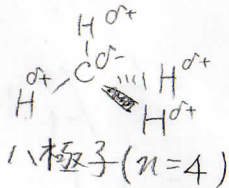 H δ+
δ+ C δ- H δ+
H H δ+
八極子(n=4)